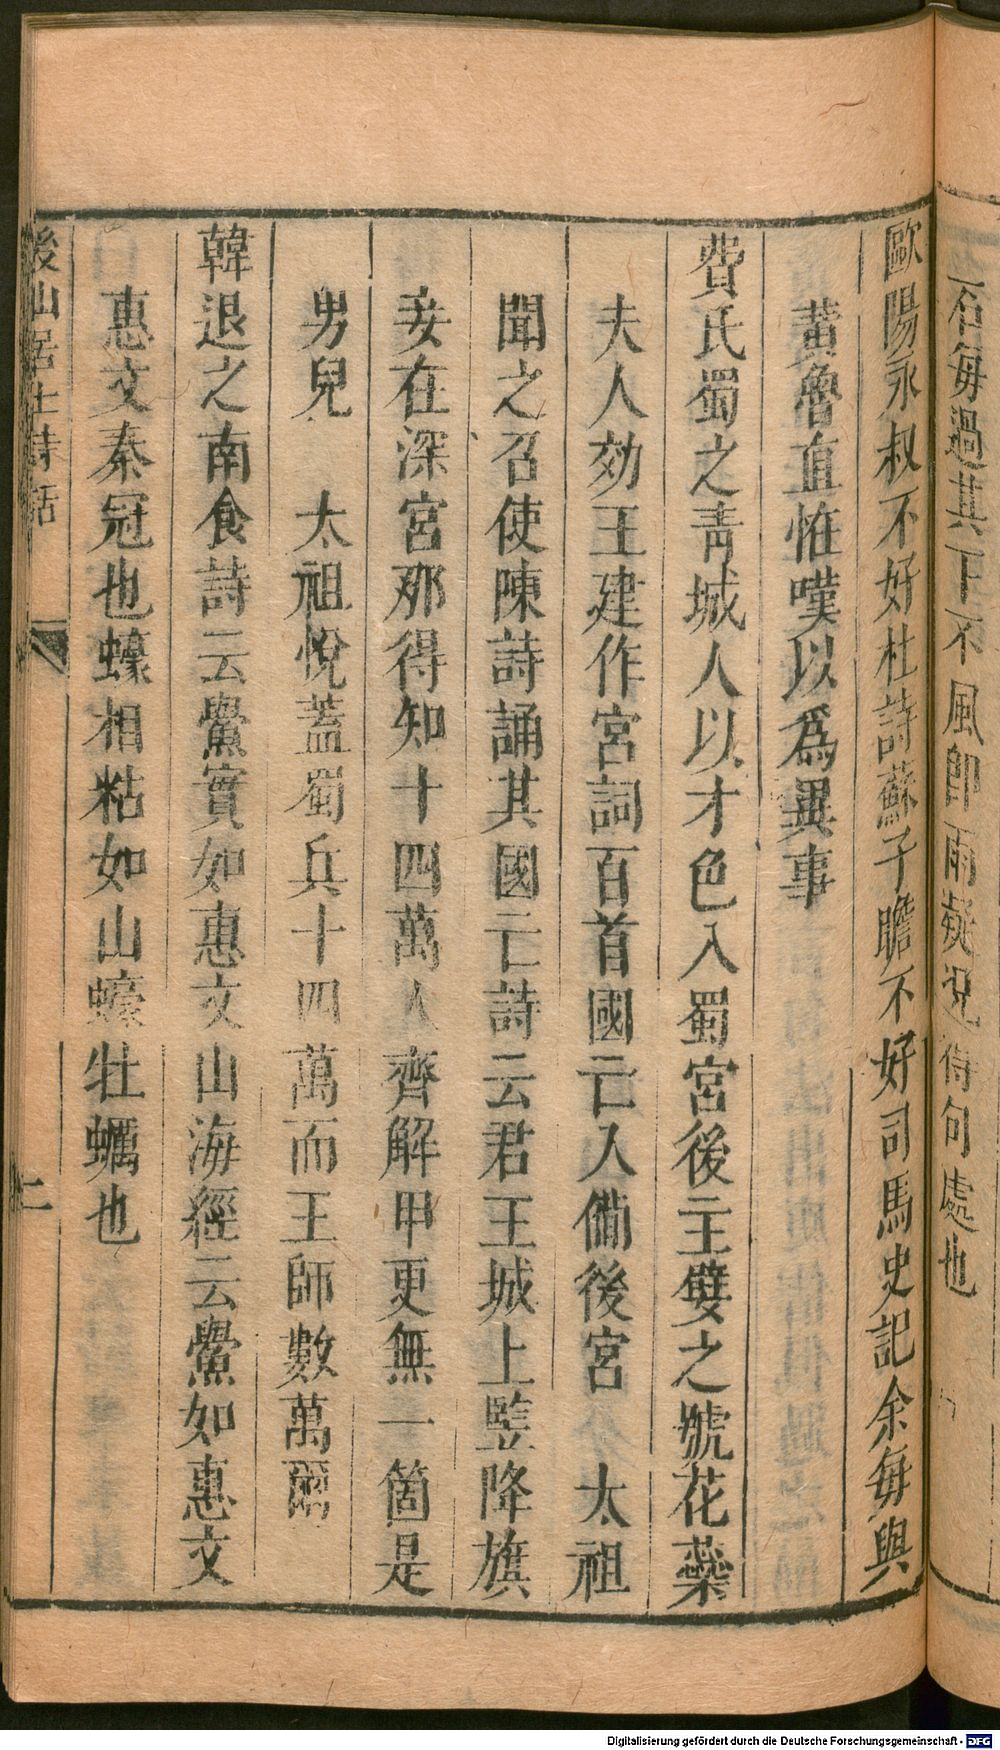 石每過其下不風即雨疑況待句處也
歐陽永叔不好杜詩蘇子瞻不好司馬史記余每與
黃魯直恠嘆以爲異事
費氏蜀之靑城人以才色入蜀宮後主嬖之號花蘂
夫人効王建作宮詞百首國亡入備後宮 太祖
聞之召使陳詩誦其國亡詩云君王城上竪降旗
妾在深宮那得知十四萬人齊解甲更無一箇是
男兒 太祖悅蓋蜀兵十四萬而王師數萬爾
韓退之南食詩云鱟實如惠文山海經云鱟如惠文
惠文秦冠也蠔相粘如山蠔牡蠣也
後山居士詩話
二
Digitalisierung gefördert durch die Deutsche Forschungsgemeinschaft - DFG